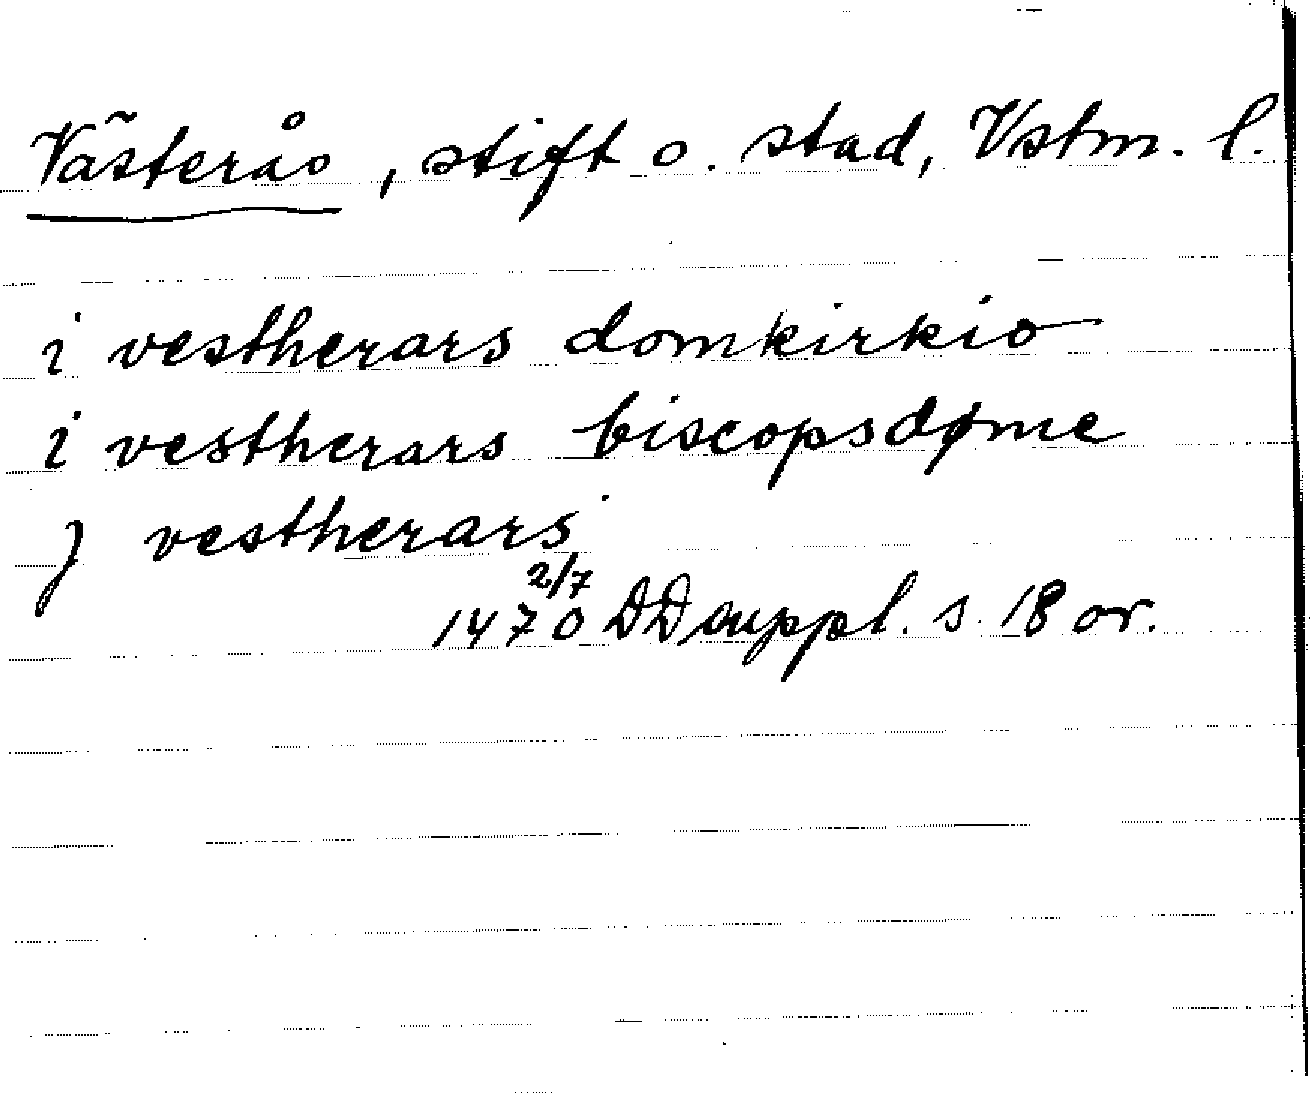 Västerås, stift o. stad, Vstm. l.
i vestherars domkirkio
i vestherars biscopsdøme
j vestherars
2/7
1470 DD suppl. s. 18 or.